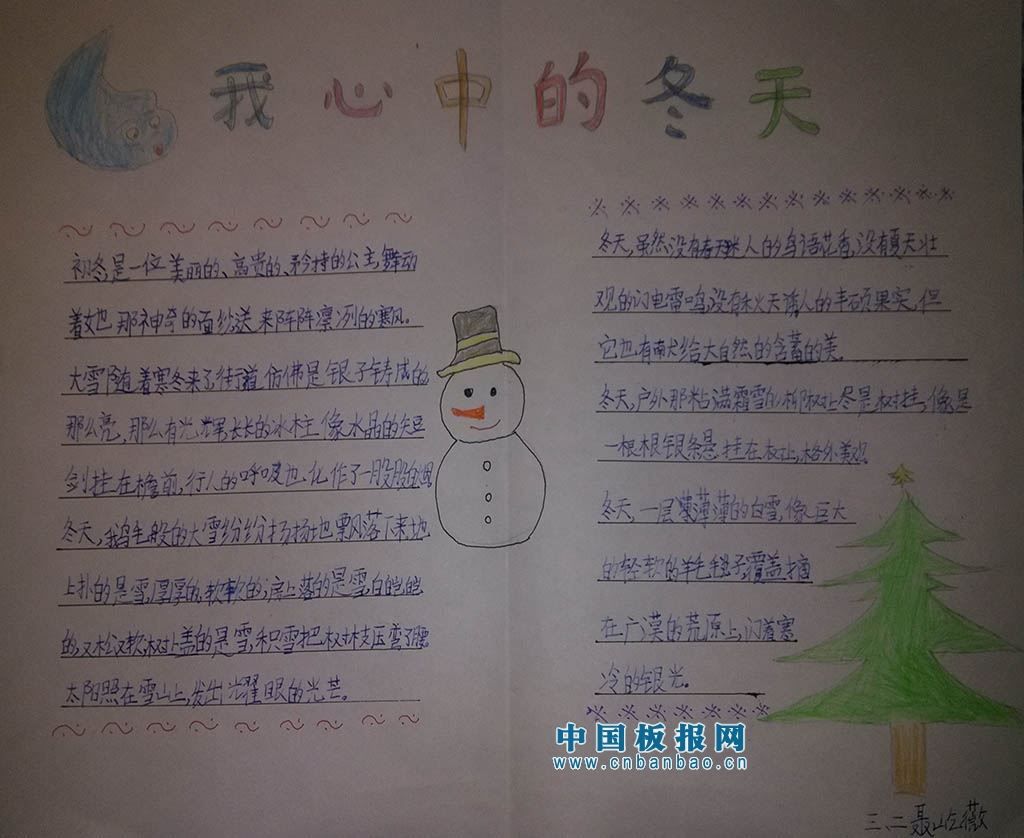 我心中的冬天
初冬,是一位美丽的、高贵的、矜持的公主,舞动
着她那神奇的面纱送来阵阵凛冽的寒风。
大雪随着寒冬来了街道仿佛是银子铸成的
那么亮,那么有光,长长的冰柱像水晶的短
剑挂在檐前,行人的呼吸也化作了一股股白烟
冬天,鹅毛般的大雪纷纷扬扬地飘风落下来地
上扑的是雪,厚厚的,软软的,房上落的是雪,白皑皑
的,又松又软,树上盖的是雪,积雪把树枝压弯了腰
太阳照在雪山上,发出耀眼的光芒。
冬天,虽然没有春天迷人的鸟语花香,没有夏天壮
观的闪电雷鸣,没有秋天诱人的丰硕果实,但
它也有献给大自然的含蓄的美。
冬天,户外那粘满霜雪的柳树上尽是树挂,像是
一根根银条悬挂在树上,格外美观
冬天,一层薄薄的白雪,像巨大
的轻软的羊毛毯子,覆盖摘
在广漠的荒原上,闪着寒
冷的银光。
中国板报网
www.cnbanbao.cn
三、二聂屹薇